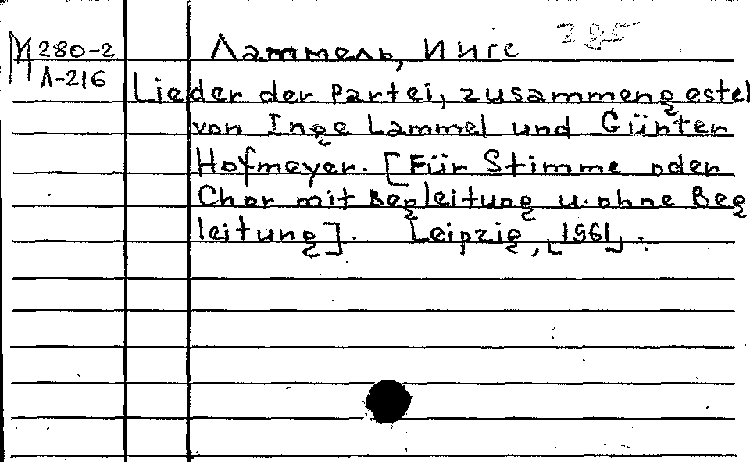 М 280-2
Л-216
Ламмель, Инге
Lieder der Partei, zusammengestel
von Inge Lammel und Günter
Hofmeyer. [Für Stimme oder
Chor mit Begleitung u. ohne Beg
leitung]. Leipzig, [1961].